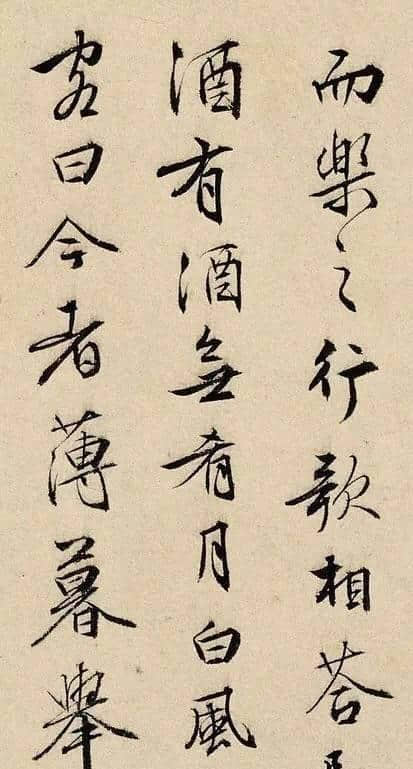 而樂之行歌相荅
酒有酒無肴月白風
客曰今者薄暮舉